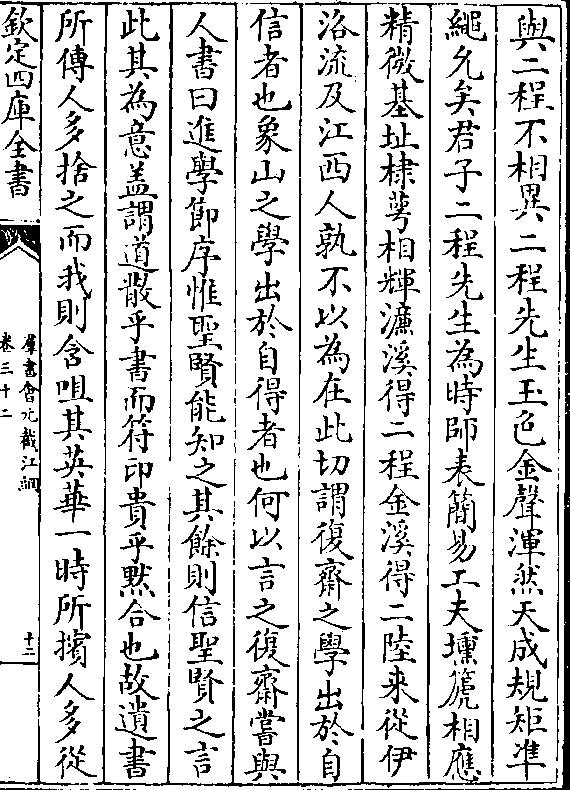 與二程不相異二程先生玉色金聲渾然天成規矩準
繩允矣君子二程先生為時師表簡易工夫壎篪相應
精微基址棣蕚相輝濂溪得二程金溪得二陸来從伊
洛流及江西人孰不以為在此切謂復齋之學出於自
信者也象山之學出於自得者也何以言之復齋嘗與
人書曰進學節序惟聖賢能知之其餘則信聖賢之言
此其為意盖謂道散乎書而符印貴乎黙合也故遺書
所傳人多捨之而我則含咀其英華一時所擯人多從
欽定四庫全書
羣書會元截江網
卷三十二
十二